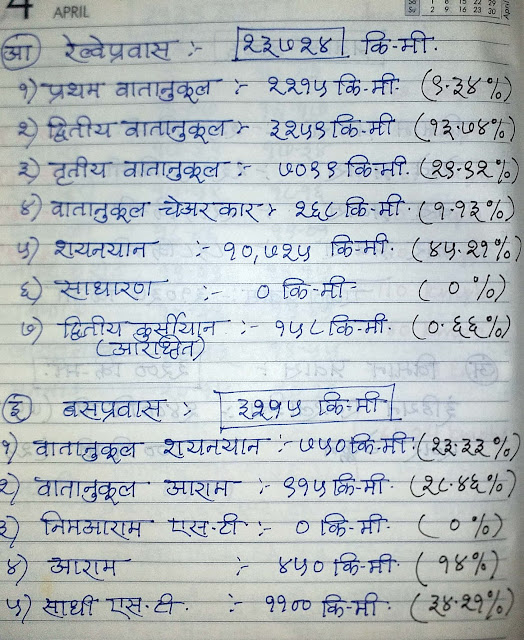 4 APRIL
Su 2 9 16 23 30
आ रेल्वेप्रवास :- २३७२४ कि.मी.
१) प्रथम वातानुकूल :- २२१५ कि.मी. (९.३४%)
२) द्वितीय वातानुकूल :- ३२५९ कि.मी. (१३.७४%)
३) तृतीय वातानुकूल :- ७०९९ कि.मी. (२९.९२%)
४) वातानुकूल चेअरकार :- २६८ कि.मी. (१.१३%)
५) शयनयान :- १०,७२५ कि.मी. (४५.२१%)
६) साधारण :- ० कि.मी. (०%)
७) द्वितीय कुर्सीयान :- १५८ कि.मी. (०.६६%)
(आरक्षित)
इ बसप्रवास :- ३२१५ कि.मी
१) वातानुकूल शयनयान :- ७५० कि.मी. (२३.३३%)
२) वातानुकूल आराम :- ९१५ कि.मी. (२८.४६%)
३) निमआराम एस.टी :- ० कि.मी. (०%)
४) आराम :- ४५० कि.मी. (१४%)
५) साधी एस.टी. :- ११०० कि.मी. (३४.२१%)